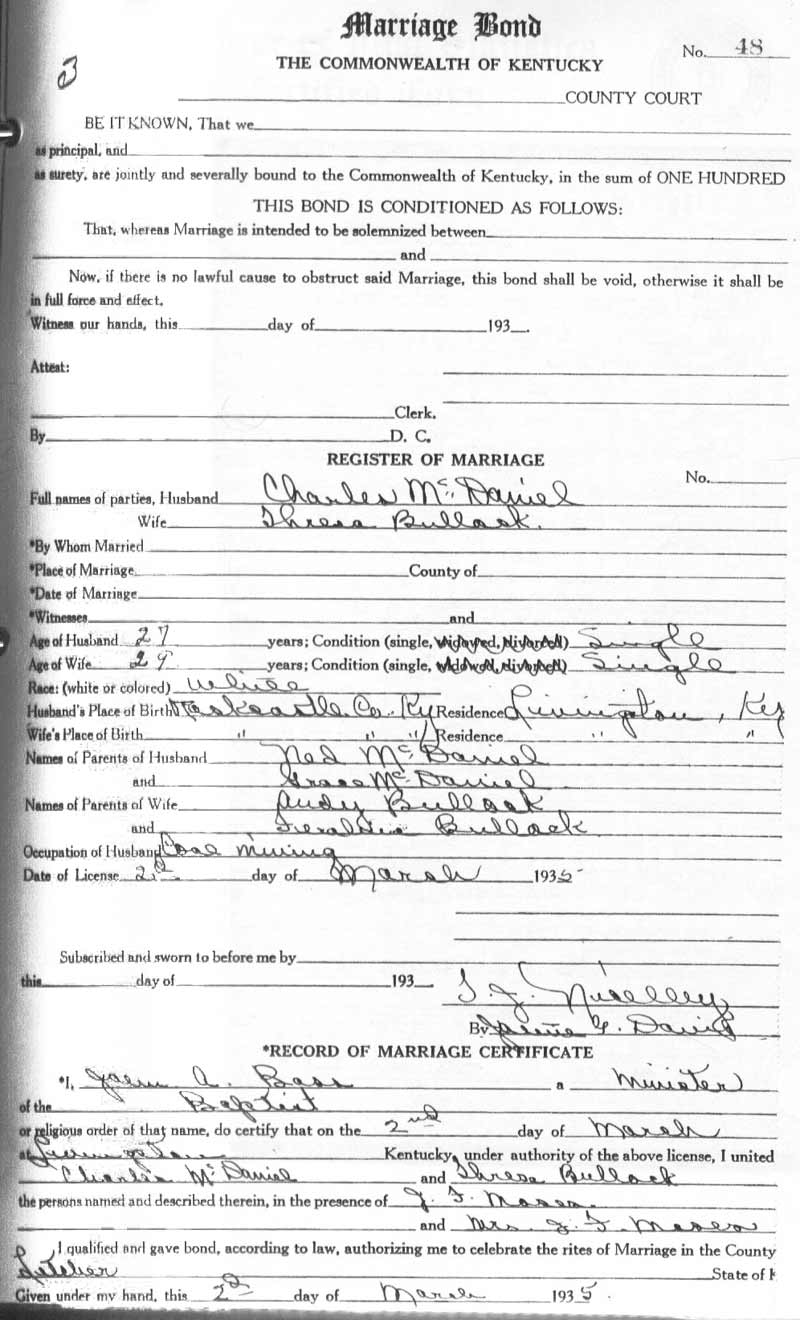 Marriage Bond
No. 48
THE COMMONWEALTH OF KENTUCKY
COUNTY COURT
BE IT KNOWN, That we
as principal, and
as surety, are jointly and severally bound to the Commonwealth of Kentucky, in the sum of ONE HUNDRED
THIS BOND IS CONDITIONED AS FOLLOWS:
That, whereas Marriage is intended to be solemnized between
and
Now, if there is no lawful cause to obstruct said Marriage, this bond shall be void, otherwise it shall be
in full force and effect.
Witness our hands, this day of 193 .
Attest:
Clerk.
By D. C.
REGISTER OF MARRIAGE
No.
Full names of parties, Husband Charles McDaniel
Wife Thresa Bullock.
*By Whom Married
*Place of Marriage County of
*Date of Marriage
*Witnesses and
Age of Husband 27 years; Condition (single, widowed, divorced) Single
Age of Wife 29 years; Condition (single, widowed, divorced) Single
Race: (white or colored) White
Husband's Place of Birth Rockcastle Co. Ky Residence Livingston, Ky
Wife's Place of Birth " " " Residence " "
Names of Parents of Husband Ned McDaniel
and Grace McDaniel
Names of Parents of Wife Andy Bullock
and Bullock
Occupation of Husband Coal Mining
Date of License 2nd day of March 1935
Subscribed and sworn to before me by
this day of 193 .
By G. Davis
*RECORD OF MARRIAGE CERTIFICATE
*I, A. Bass a Minister
of the Baptist
or religious order of that name, do certify that on the 2nd day of March
at Livingston Kentucky, under authority of the above license, I united
Charles McDaniel and Thresa Bullock
the persons named and described therein, in the presence of J. F. Mason
and Mrs J. F. Mason
I qualified and gave bond, according to law, authorizing me to celebrate the rites of Marriage in the County
Letcher State of
Given under my hand, this 2nd day of March 1935.